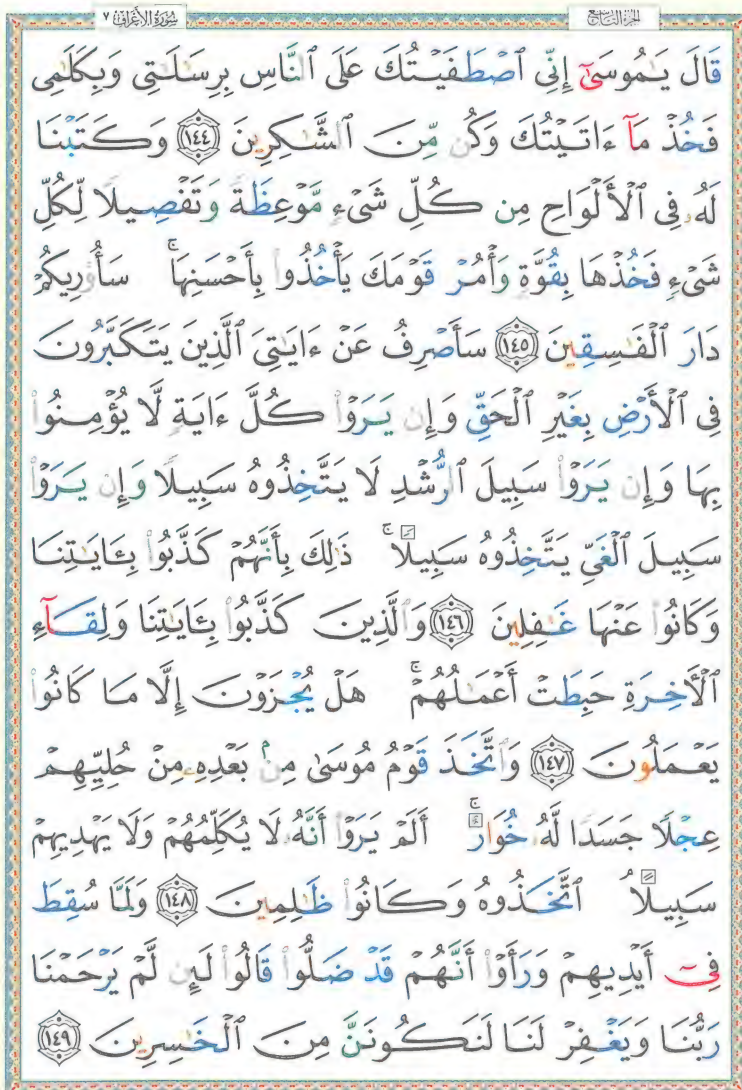 سُورَةُ الأَعۡرَافِ ٧
الجُزۡءُ التَّاسِعُ
قَالَ يَٰمُوسَىٰٓ إِنِّي ٱصۡطَفَيۡتُكَ عَلَى ٱلنَّاسِ بِرِسَٰلَٰتِي وَبِكَلَٰمِي
فَخُذۡ مَآ ءَاتَيۡتُكَ وَكُن مِّنَ ٱلشَّٰكِرِينَ ١٤٤ وَكَتَبۡنَا
لَهُۥ فِي ٱلۡأَلۡوَاحِ مِن كُلِّ شَيۡءٖ مَّوۡعِظَةٗ وَتَفۡصِيلٗا لِّكُلِّ
شَيۡءٖ فَخُذۡهَا بِقُوَّةٖ وَأۡمُرۡ قَوۡمَكَ يَأۡخُذُواْ بِأَحۡسَنِهَاۚ سَأُوْرِيكُمۡ
دَارَ ٱلۡفَٰسِقِينَ ١٤٥ سَأَصۡرِفُ عَنۡ ءَايَٰتِيَ ٱلَّذِينَ يَتَكَبَّرُونَ
فِي ٱلۡأَرۡضِ بِغَيۡرِ ٱلۡحَقِّ وَإِن يَرَوۡاْ كُلَّ ءَايَةٖ لَّا يُؤۡمِنُواْ
بِهَا وَإِن يَرَوۡاْ سَبِيلَ ٱلرُّشۡدِ لَا يَتَّخِذُوهُ سَبِيلٗا وَإِن يَرَوۡاْ
سَبِيلَ ٱلۡغَيِّ يَتَّخِذُوهُ سَبِيلٗاۚ ذَٰلِكَ بِأَنَّهُمۡ كَذَّبُواْ بِـَٔايَٰتِنَا
وَكَانُواْ عَنۡهَا غَٰفِلِينَ ١٤٦ وَٱلَّذِينَ كَذَّبُواْ بِـَٔايَٰتِنَا وَلِقَآءِ
ٱلۡأٓخِرَةِ حَبِطَتۡ أَعۡمَٰلُهُمۡۚ هَلۡ يُجۡزَوۡنَ إِلَّا مَا كَانُواْ
يَعۡمَلُونَ ١٤٧ وَٱتَّخَذَ قَوۡمُ مُوسَىٰ مِنۢ بَعۡدِهِۦ مِنۡ حُلِيِّهِمۡ
عِجۡلٗا جَسَدٗا لَّهُۥ خُوَارٌۚ أَلَمۡ يَرَوۡاْ أَنَّهُۥ لَا يُكَلِّمُهُمۡ وَلَا يَهۡدِيهِمۡ
سَبِيلًاۘ ٱتَّخَذُوهُ وَكَانُواْ ظَٰلِمِينَ ١٤٨ وَلَمَّا سُقِطَ
فِيٓ أَيۡدِيهِمۡ وَرَأَوۡاْ أَنَّهُمۡ قَدۡ ضَلُّواْ قَالُواْ لَئِن لَّمۡ يَرۡحَمۡنَا
رَبُّنَا وَيَغۡفِرۡ لَنَا لَنَكُونَنَّ مِنَ ٱلۡخَٰسِرِينَ ١٤٩